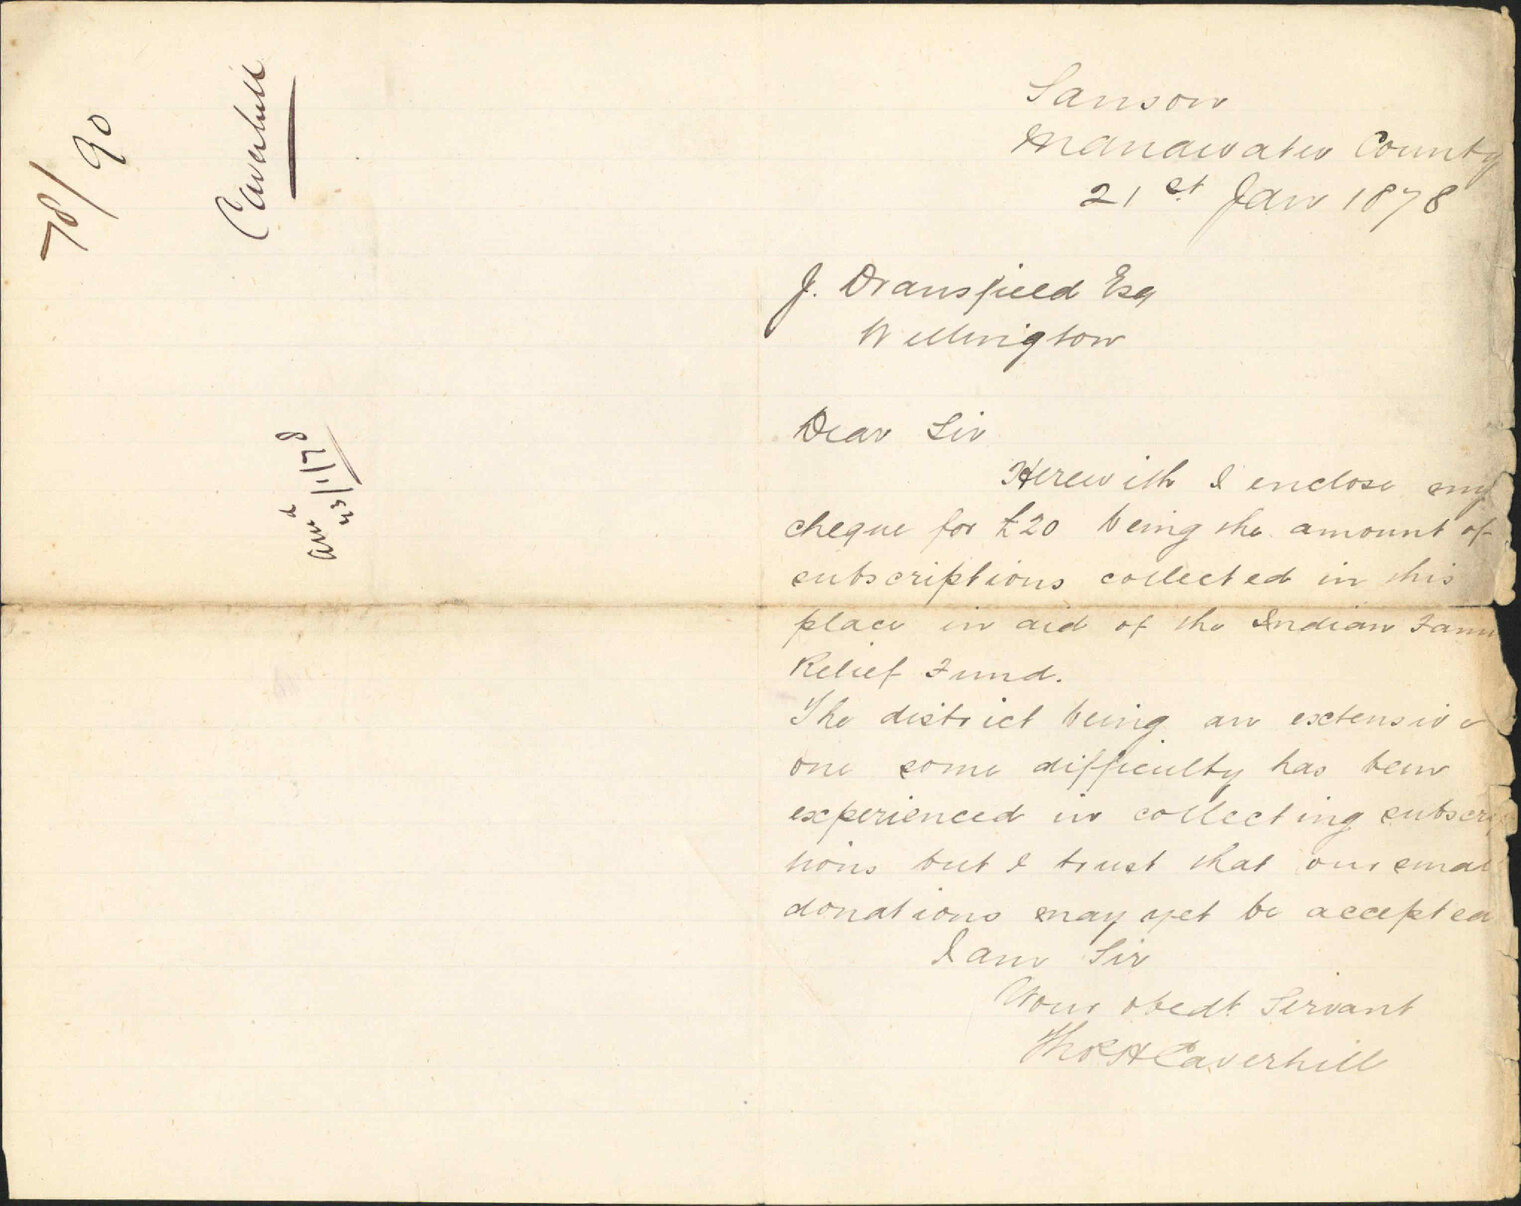 78/90
Caverhill
Ansd
23/1/78
Sanson
Manawatu County
21st Jan 1878
J. Dransfield Esq
Wellington
Dear Sir
Herewith I enclose my
cheque for £20 being the amount of
subscriptions collected in this
place in aid of the Indian Fami
Relief Fund.
The district being an extensive
one some difficulty has been
experienced in collecting subscrip
tions but I trust that our small
donations may yet be accepted
I am Sir
Your obedt Servant
Thos H Caverhill